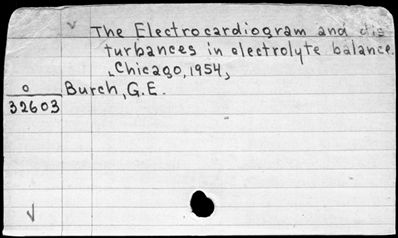 The Electrocardiogram and dis
turbances in electrolyte balance.
Chicago, 1954,
o
Burch, G.E.
32603